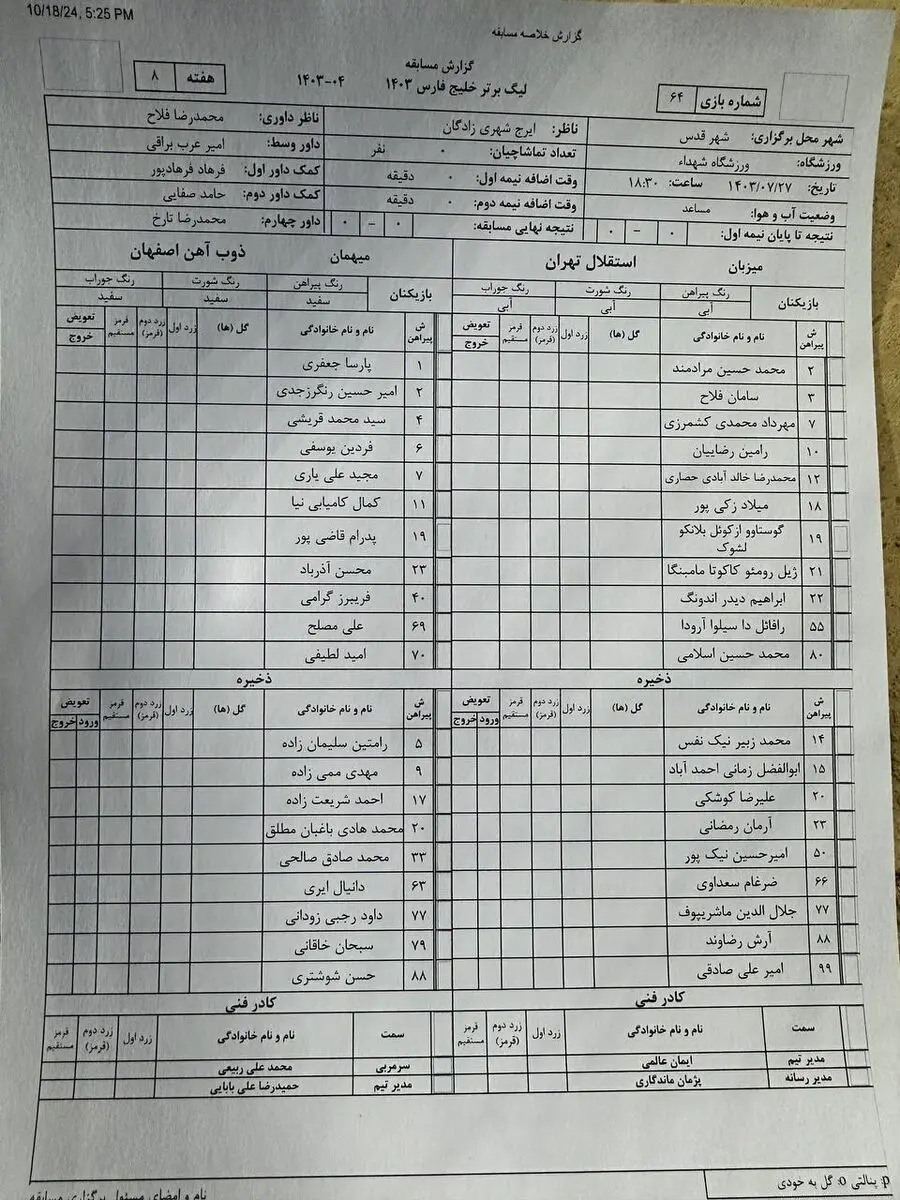 10/18/24, 5:25 PM
گزارش خلاصه مسابقه
گزارش مسابقه
لیگ برتر خلیج فارس ۱۴۰۳ ۰۴-۱۴۰۳
شماره بازی ۶۴
هفته ۸
شهر محل برگزاری: شهر قدس
ورزشگاه: ورزشگاه شهداء
تاریخ: ۱۴۰۳/۰۷/۲۷ ساعت: ۱۸:۳۰
وضعیت آب و هوا: مساعد
نتیجه تا پایان نیمه اول: ۰ – ۰
ناظر: ایرج شهری زادگان
تعداد تماشاچیان: ۰ نفر
وقت اضافه نیمه اول: ۰ دقیقه
وقت اضافه نیمه دوم: ۰ دقیقه
نتیجه نهایی مسابقه: ۰ – ۰
ناظر داوری: محمدرضا فلاح
داور وسط: امیر عرب براقی
کمک داور اول: فرهاد فرهادپور
کمک داور دوم: حامد صفایی
داور چهارم: محمدرضا تارخ
میزبان استقلال تهران
بازیکنان رنگ پیراهن رنگ شورت رنگ جوراب
آبی آبی آبی
ش پیراهن نام و نام خانوادگی گل (ها) زرد اول زرد دوم (قرمز) قرمز مستقیم تعویض خروج
۲ محمد حسین مرادمند
۳ سامان فلاح
۷ مهرداد محمدی کشمرزی
۱۰ رامین رضاییان
۱۲ محمدرضا خالد آبادی حصاری
۱۸ میلاد زکی پور
۱۹ گوستاوو ازکوئل بلانکو
لشوک
۲۱ ژیل رومئو کاکوتا مامبنگا
۲۲ ابراهیم دیدر اندونگ
۵۵ رافائل دا سیلوا آرودا
۸۰ محمد حسین اسلامی
ذخیره
ش پیراهن نام و نام خانوادگی گل (ها) زرد اول زرد دوم (قرمز) قرمز مستقیم تعویض ورود خروج
۱۴ محمد زبیر نیک نفس
۱۵ ابوالفضل زمانی احمد آباد
۲۰ علیرضا کوشکی
۲۳ آرمان رمضانی
۵۰ امیرحسین نیک پور
۶۶ ضرغام سعداوی
۷۷ جلال الدین ماشریپوف
۸۸ آرش رضاوند
۹۹ امیر علی صادقی
کادر فنی
سمت نام و نام خانوادگی زرد اول زرد دوم (قرمز) قرمز مستقیم
مدیر تیم ایمان عالمی
مدیر رسانه پژمان ماندگاری
میهمان ذوب آهن اصفهان
بازیکنان رنگ پیراهن رنگ شورت رنگ جوراب
سفید سفید سفید
ش پیراهن نام و نام خانوادگی گل (ها) زرد اول زرد دوم (قرمز) قرمز مستقیم تعویض خروج
۱ پارسا جعفری
۲ امیر حسین رنگرزجدی
۴ سید محمد قریشی
۶ فردین یوسفی
۷ مجید علی یاری
۱۱ کمال کامیابی نیا
۱۹ پدرام قاضی پور
۲۳ محسن آذرباد
۴۰ فریبرز گرامی
۶۹ علی مصلح
۷۰ امید لطیفی
ذخیره
ش پیراهن نام و نام خانوادگی گل (ها) زرد اول زرد دوم (قرمز) قرمز مستقیم تعویض ورود خروج
۵ رامتین سلیمان زاده
۹ مهدی ممی زاده
۱۷ احمد شریعت زاده
۲۰ محمد هادی باغبان مطلق
۳۳ محمد صادق صالحی
۶۳ دانیال ایری
۷۷ داود رجبی زودانی
۷۹ سبحان خاقانی
۸۸ حسن شوشتری
کادر فنی
سمت نام و نام خانوادگی زرد اول زرد دوم (قرمز) قرمز مستقیم
سرمربی محمد علی ربیعی
مدیر تیم حمیدرضا علی بابایی
p: پنالتی o: گل به خودی
نام و امضای مسئول برگزاری مسابقه